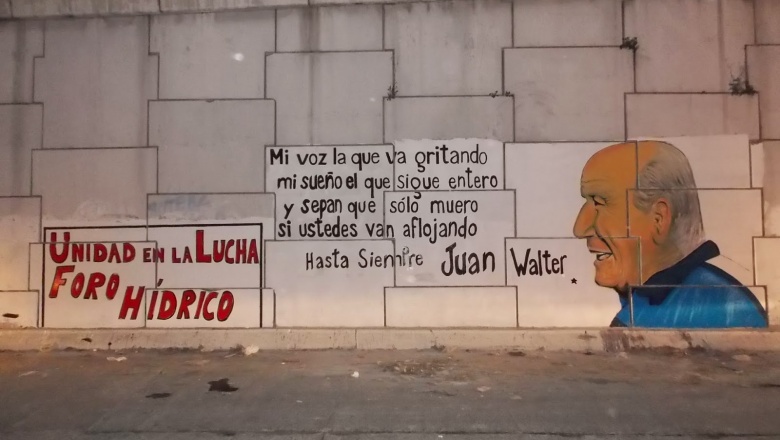 UNIDAD EN LA LUCHA
FORO HÍDRICO
Mi voz la que va gritando
mi sueño el que sigue entero
y sepan que sólo muero
si ustedes van aflojando
Hasta Siempre Juan Walter.